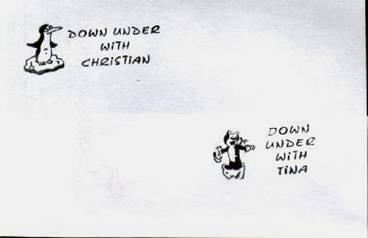 DOWN UNDER
WITH
CHRISTIAN
DOWN
UNDER
WITH
TINA